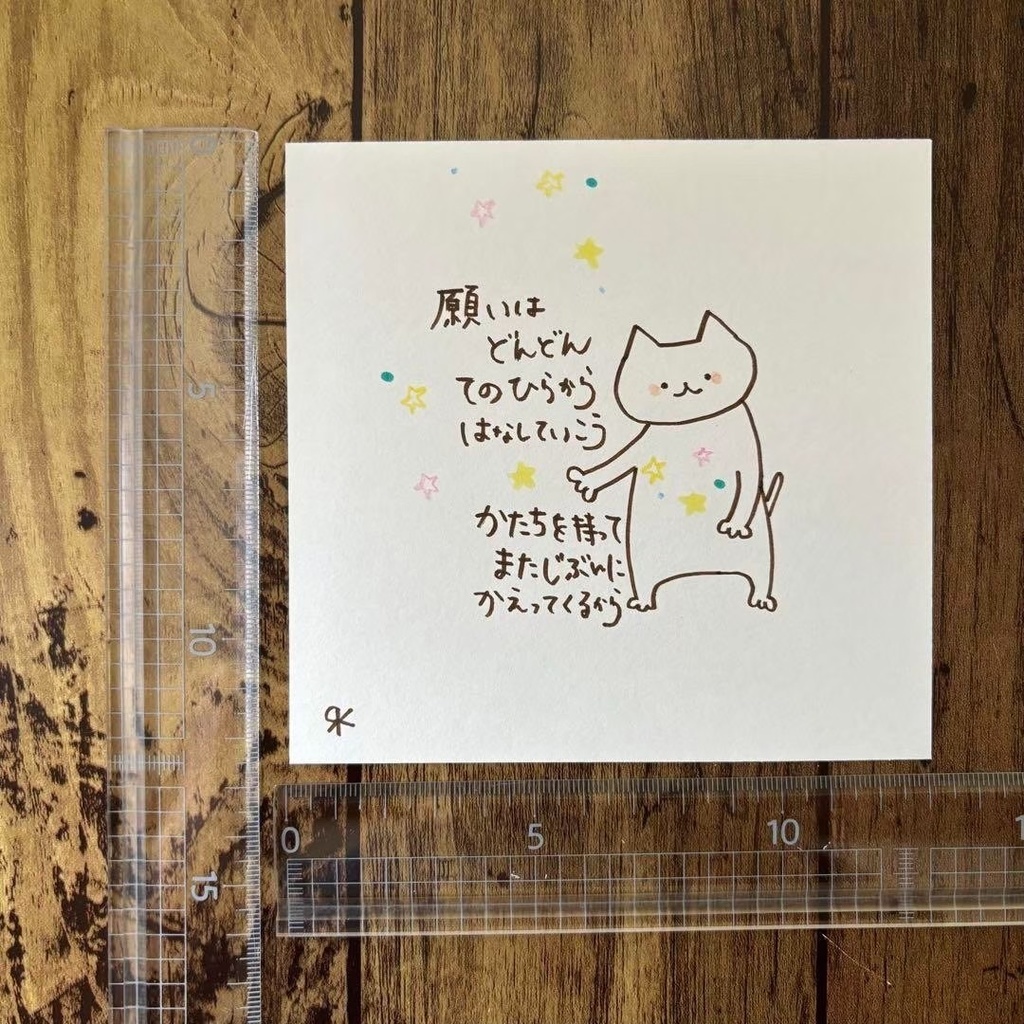 願いは
どんどん
てのひらから
はなしていこう
かたちを持って
またじぶんに
かえってくるから
5
10
15
0
5
10